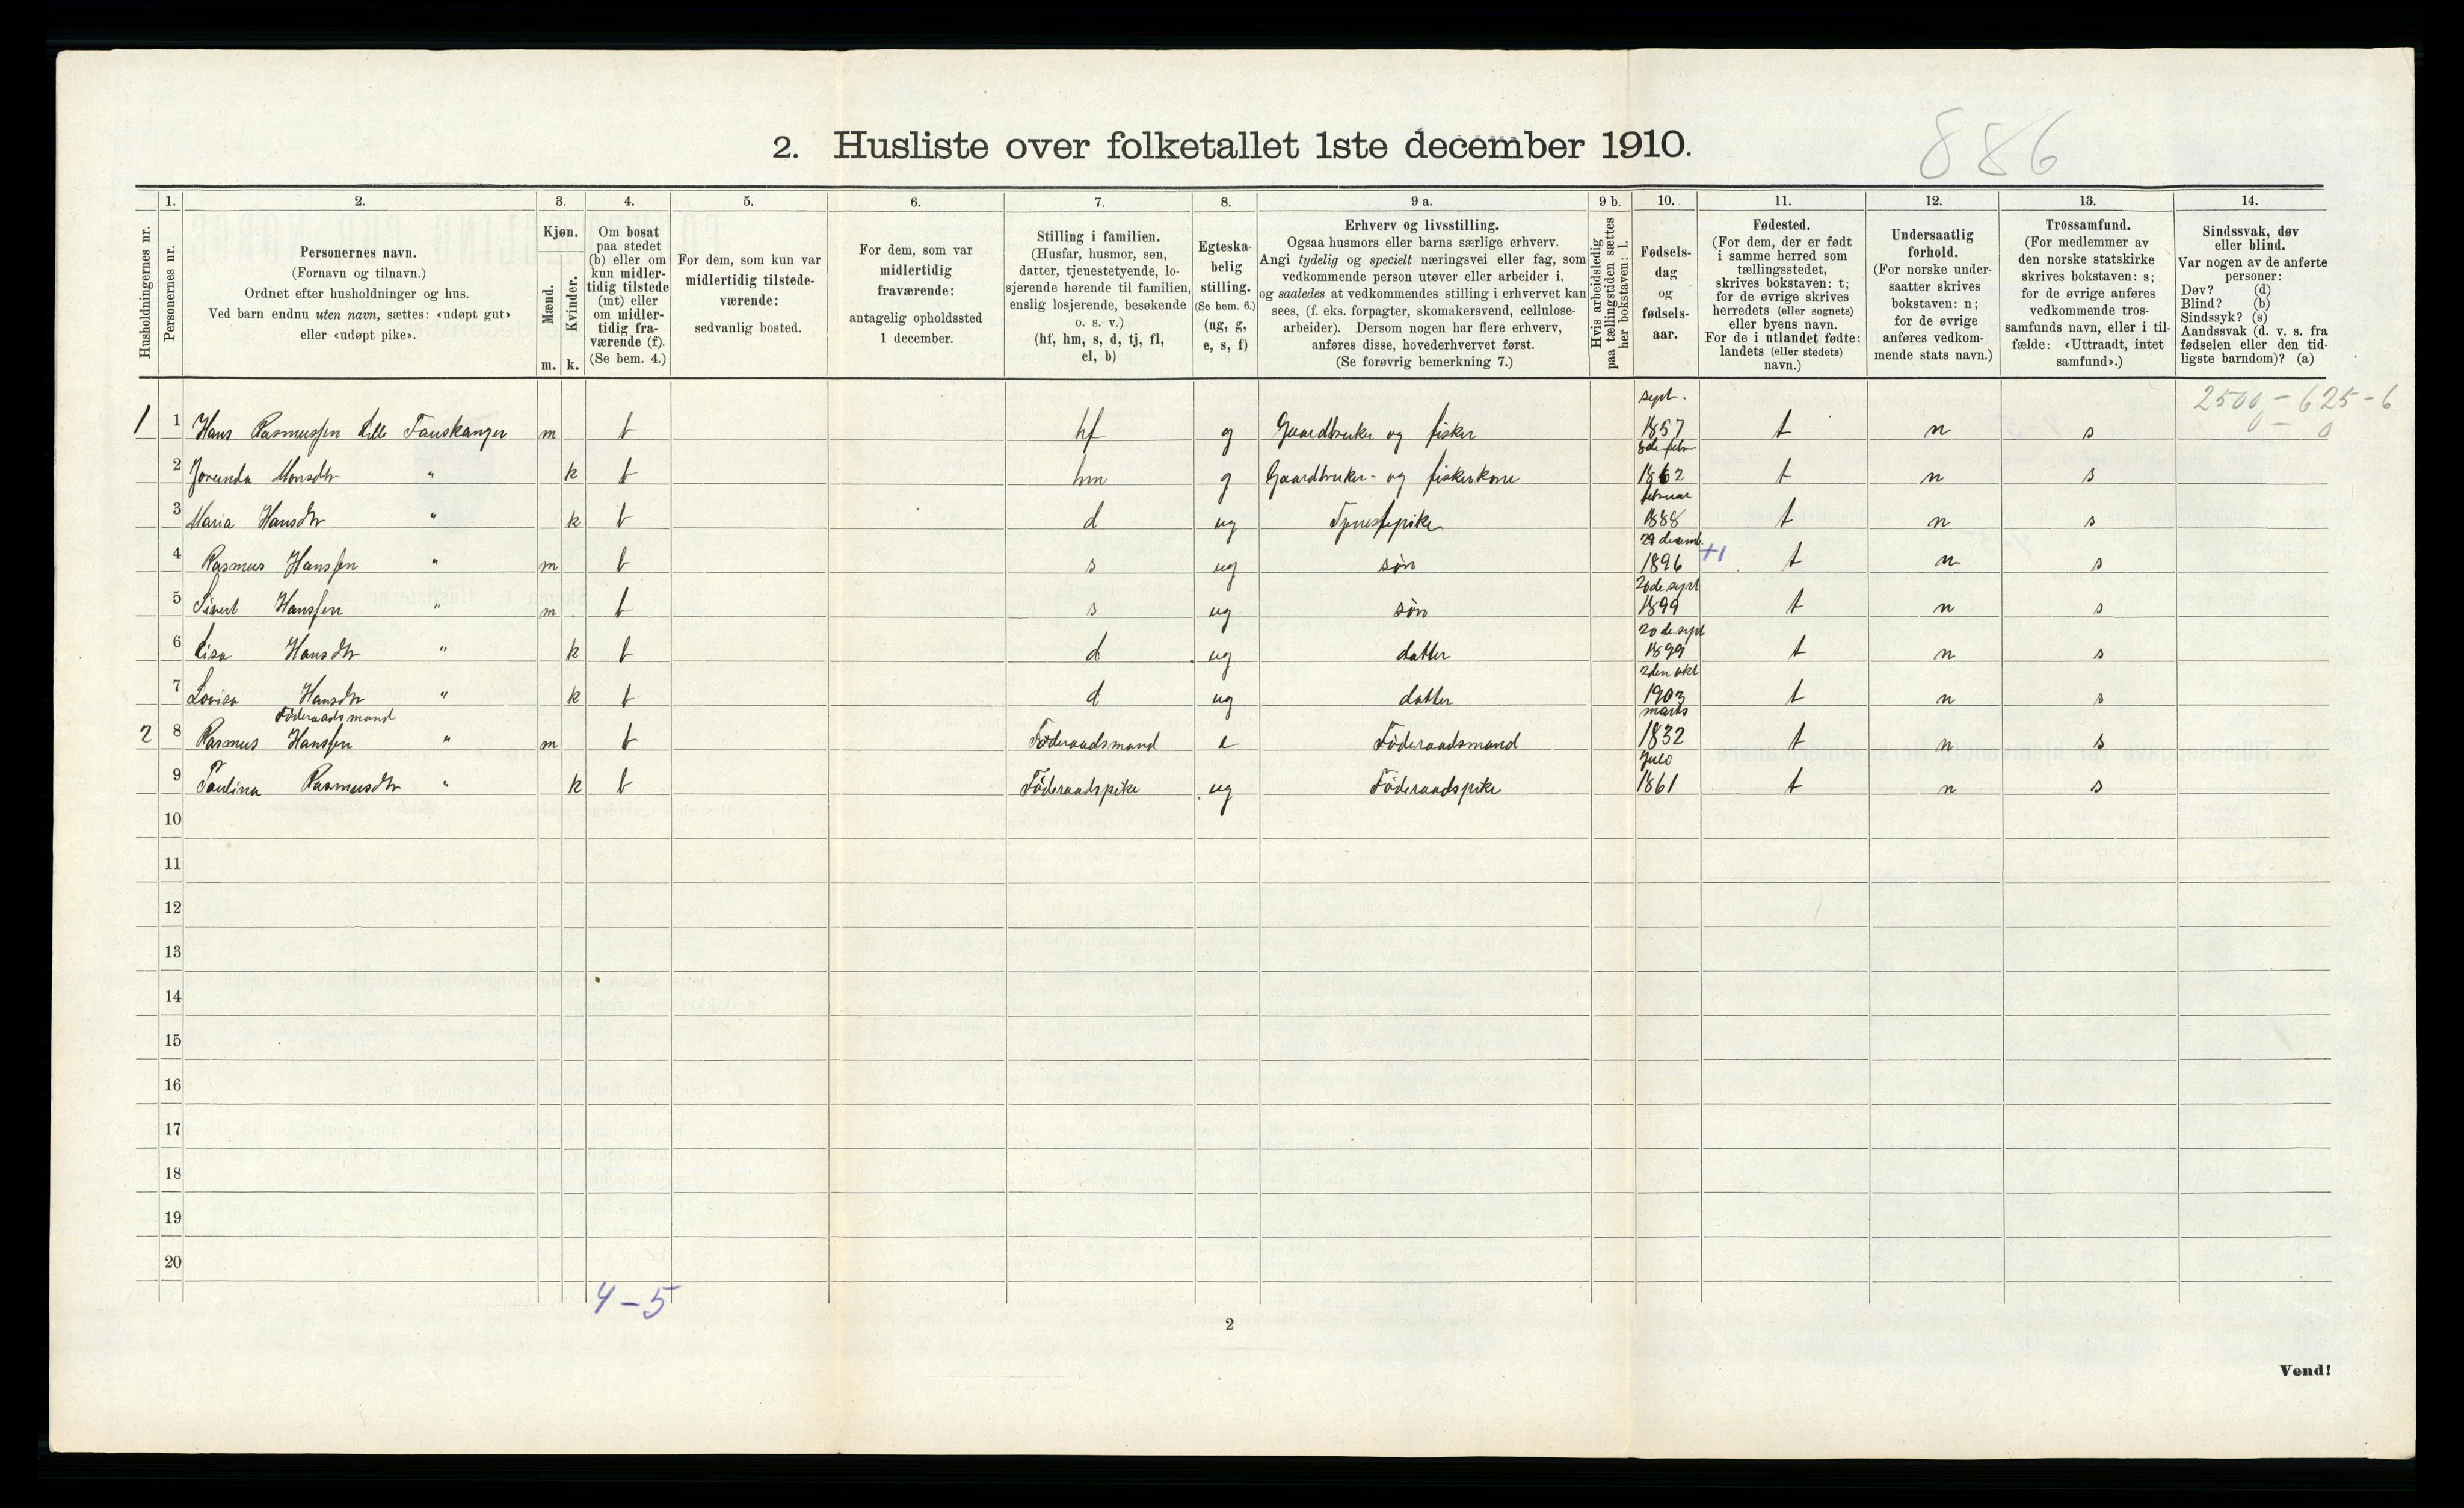 2. Husliste over folketallet 1ste december 1910.
886
Husholdningernes nr.
1.
Personernes nr.
2.
Personernes navn.
(Fornavn og tilnavn.)
Ordnet efter husholdninger og hus.
Ved barn endnu uten navn, sættes: «udøpt gut»
eller «udøpt pike».
3.
Kjøn.
Mænd.
m.
Kvinder.
k.
4.
Om bosat
paa stedet
(b) eller om
kun midler-
tidig tilstede
(mt) eller
om midler-
tidig fra-
værende (f).
(Se bem. 4.)
5.
For dem, som kun var
midlertidig tilstede-
værende:
sedvanlig bosted.
6.
For dem, som var
midlertidig
fraværende:
antagelig opholdssted
1 december.
7.
Stilling i familien.
(Husfar, husmor, søn,
datter, tjenestetyende, lo-
sjerende hørende til familien,
enslig losjerende, besøkende
o. s. v.)
(hf, hm, s, d, tj, fl,
el, b)
8.
Egteska-
belig
stilling.
(Se bem. 6.)
(ug, g,
e, s, f)
9 a.
Erhverv og livsstilling.
Ogsaa husmors eller barns særlige erhverv.
Angi tydelig og specielt næringsvei eller fag, som
vedkommende person utøver eller arbeider i,
og saaledes at vedkommendes stilling i erhvervet kan
sees, (f. eks. forpagter, skomakersvend, cellulose-
arbeider). Dersom nogen har flere erhverv,
anføres disse, hovederhvervet først.
(Se forøvrig bemerkning 7.)
9 b.
Hvis arbeidsledig
paa tællingstiden sættes
her bokstaven: l.
10.
Fødsels-
dag
og
fødsels-
aar.
11.
Fødested.
(For dem, der er født
i samme herred som
tællingsstedet,
skrives bokstaven: t;
for de øvrige skrives
herredets (eller sognets)
eller byens navn.
For de i utlandet fødte:
landets (eller stedets)
navn.)
12.
Undersaatlig
forhold.
(For norske under-
saatter skrives
bokstaven: n;
for de øvrige
anføres vedkom-
mende stats navn.)
13.
Trossamfund.
(For medlemmer av
den norske statskirke
skrives bokstaven: s;
for de øvrige anføres
vedkommende tros-
samfunds navn, eller i til-
fælde: «Uttraadt, intet
samfund».)
14.
Sindssvak, døv
eller blind.
Var nogen av de anførte
personer:
Døv? (d)
Blind? (b)
Sindssyk? (s)
Aandssvak (d. v. s. fra
fødselen eller den tid-
ligste barndom)? (a)
2500 - 625 - 6
0 - 0
sept.
1 1 Hans Rasmussen Lille Fauskanger m b hf g Gaardbruker og fisker 1857 t n s
8de febr
2 Jorunda Monsdtr " k b hm g Gaardbruker- og fiskerkone 1862 t n s
februar
3 Maria Hansdtr " k b d ug Tjenestepike 1888 t n s
29 decemb.
4 Rasmus Hanssen " m b s ug søn 1896 +1 t n s
20de sept
5 Sivert Hanssen " m b s ug søn 1899 t n s
20de sept
6 Lisa Hansdtr " k b d ug datter 1899 t n s
2den okt
7 Lovisa Hansdtr " k b d ug datter 1903 t n s
Föderaadsmand marts
2 8 Rasmus Hanssen " m b Föderaadsmand e Föderaadsmand 1832 t n s
Julo
9 Paulina Rasmusdtr " k b Föderaadspike ug Föderaadspike 1861 t n s
10
11
12
13
14
15
16
17
18
19
20
4 - 5
2
Vend!